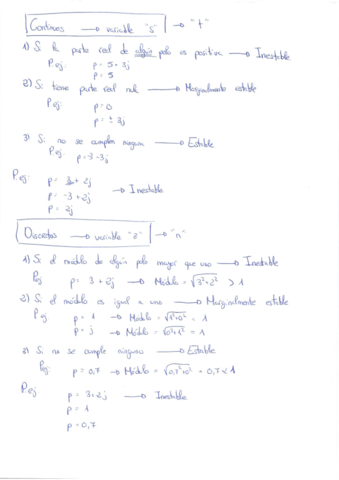 Continuos → variable "s" → "t"
1) Si la parte real de algún polo es positiva → Inestable
P.ej: p = 5 + 3j
p = 5
2) Si tiene parte real nula → Marginalmente estable
P.ej: p = 0
p = ± 3j
3) Si no se cumple ninguna → Estable
P.ej: p = -3 - 3j
P.ej: p = 3 + 2j
p = -3 + 2j → Inestable
p = 2j
Discretos → variable "z" → "n"
1) Si el módulo de algún polo mayor que uno → Inestable
P.ej p = 3 + 2j → Módulo = √3²+2² > 1
2) Si el módulo es igual a uno → Marginalmente estable
P.ej p = 1 → Módulo = √1²+0² = 1
p = j → Módulo = √0²+1² = 1
3) Si no se cumple ninguno → Estable
P.ej: p = 0,7 → Módulo = √0,7²+0² = 0,7 < 1
P.ej: p = 3+2j → Inestable
p = 1
p = 0,7